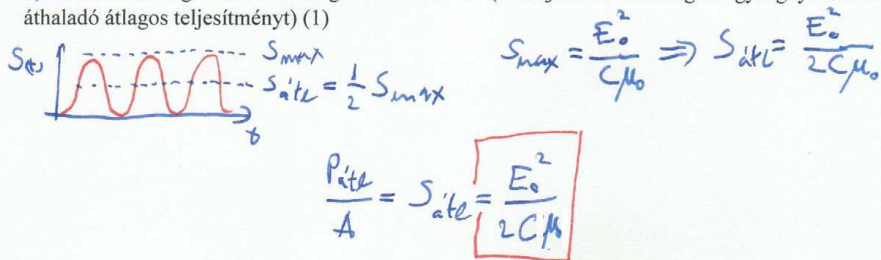 áthaladó átlagos teljesítményt) (1)
S(t) S_max
S_átl = 1/2 S_max
t
S_max = E₀²/(cμ₀) ⟹ S_átl = E₀²/(2cμ₀)
P_átl/A = S_átl = E₀²/(2cμ₀)